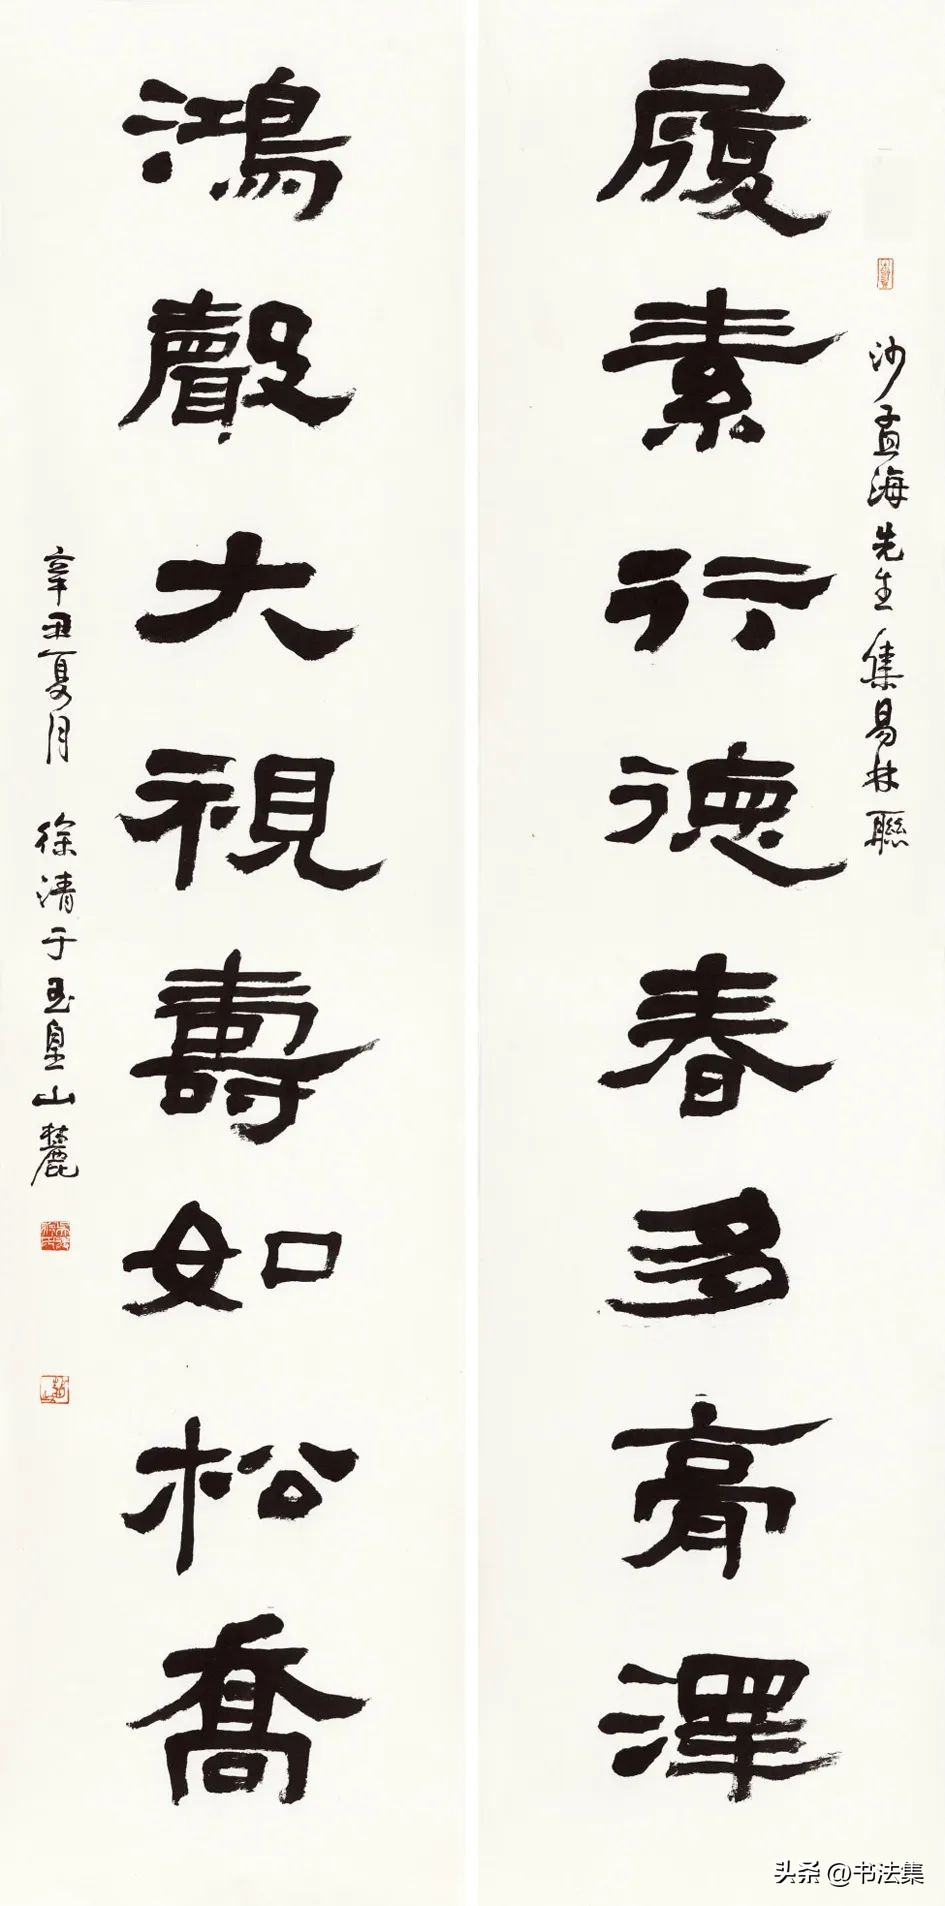 履素行德春多膏澤
沙孟海先生集易林聯
鴻聲大視壽如松喬
辛丑夏月 徐清于玉皇山麓
头条 @书法集